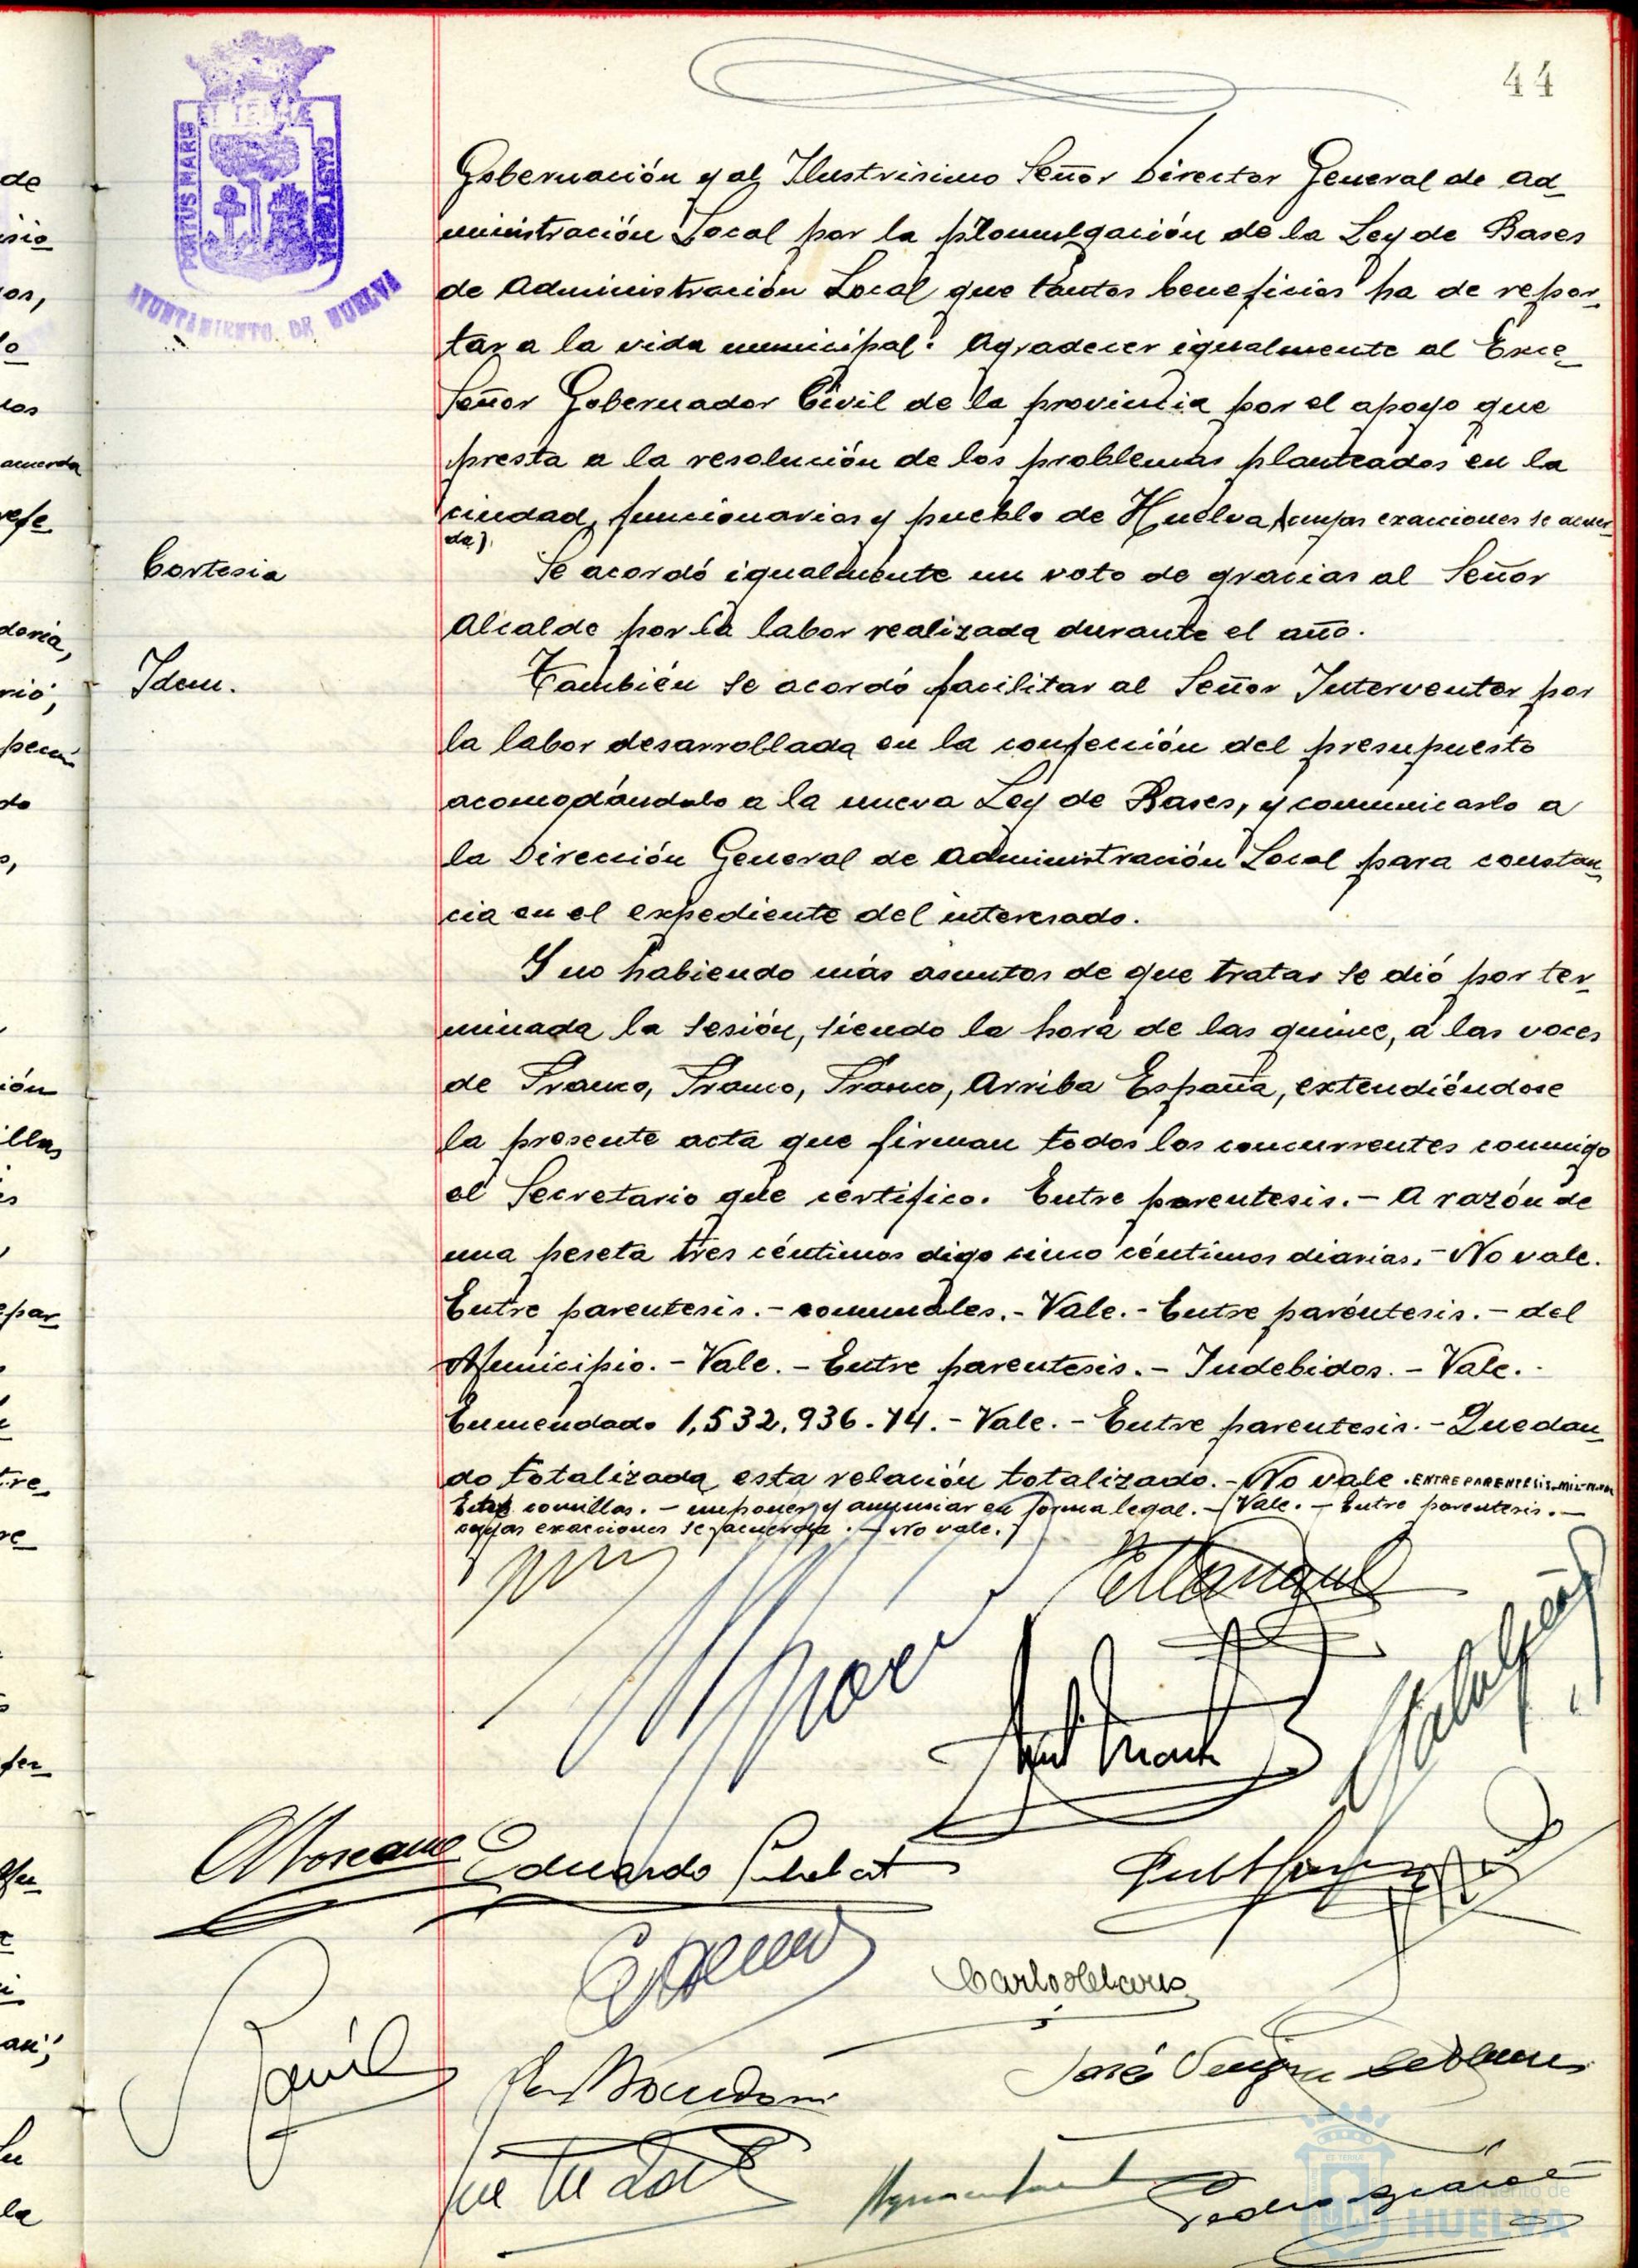 44
PORTUS MARIS
ET TERRÆ
CUSTODIA
AYUNTAMIENTO DE HUELVA
Gobernación y al Ilustrisimo Señor Director General de Ad-
ministración Local por la promulgación de la Ley de Bases
de Administración Local que tantos beneficios ha de repor-
tar a la vida municipal. Agradecer igualmente al Exce-
Señor Gobernador Civil de la provincia por el apoyo que
presta a la resolución de los problemas planteados en la
ciudad, funcionarios y pueblo de Huelva (cuyas exacciones se acuer-
da).
Cortesia
Se acordó igualmente un voto de gracias al Señor
Alcalde por la labor realizada durante el año.
Idem.
También se acordó facilitar al Señor Interventor por
la labor desarrollada en la confección del presupuesto
acomodándolo a la nueva Ley de Bases, y comunicarlo a
la Dirección General de Administración Local para constan-
cia en el expediente del interesado.
Y no habiendo más asuntos de que tratar se dió por ter-
minada la sesión, siendo la hora de las quince, a las voces
de Franco, Franco, Franco, Arriba España, extendiéndose
la presente acta que firman todos los concurrentes conmigo
el Secretario que certifico. Entre parentesis.- A razón de
una peseta tres céntimos digo cinco céntimos diarias.- No vale.
Entre parentesis.- comunales.- Vale.- Entre paréntesis.- del
Municipio.- Vale.- Entre parentesis.- Indebidos.- Vale.-
Enmendado 1,532,936.74.- Vale.- Entre parentesis.- Quedan-
do totalizada esta relación totalizado.- No vale. ENTRE PARENTESIS
Entre comillas.- imponer y anunciar en forma legal.- Vale.- Entre parentesis.-
cuyas exacciones se acuerda.- No vale.
Eduardo
José
Pedro
Ayuntamiento de
HUELVA